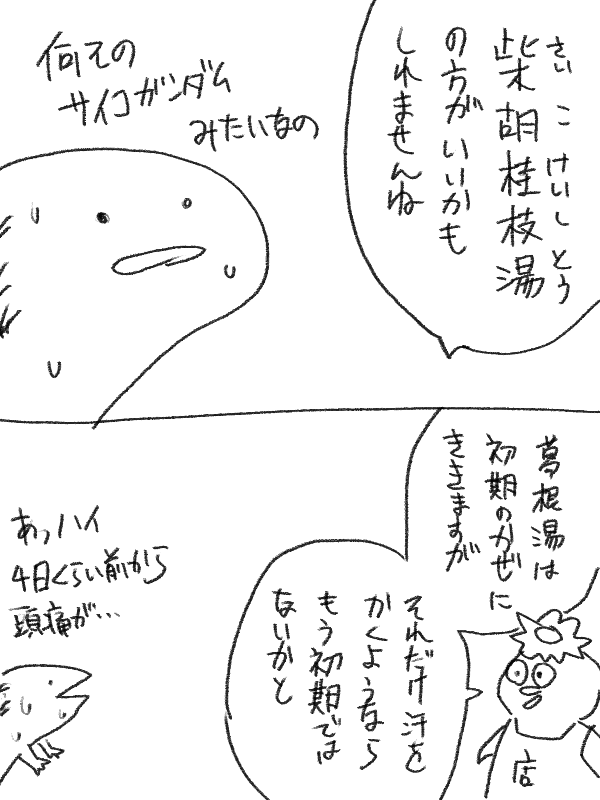 柴胡桂枝湯
さいこけいしとう
の方がいいかも
しれませんね
何その
サイコガンダム
みたいなの
葛根湯は
初期のかぜに
ききますが
それだけ汗を
かくようなら
もう初期では
ないかと
あっハイ
4日くらい前から
頭痛が…
店